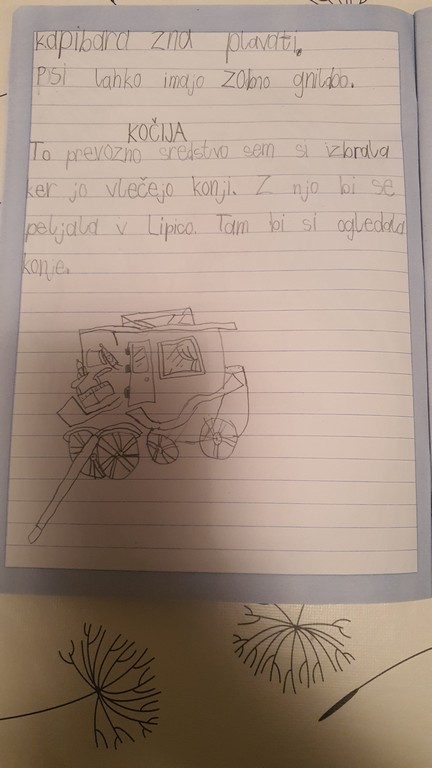 kapibara zna plavati.
Psi lahko imajo zobno gnilobo.
KOČIJA
To prevozno sredstvo sem si izbrala
ker jo vlečejo konji. Z njo bi se
peljala v Lipico. Tam bi si ogledala
konje.